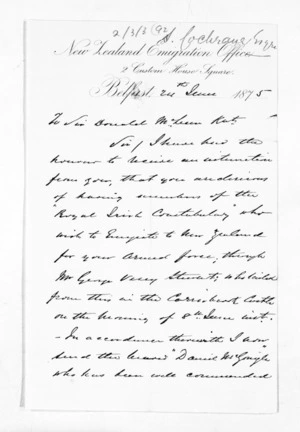 2/3/3 (92) A. Cochrane Esqre
New Zealand Emigration Office
2 Custom House Square.
Belfast, 24th June 1875
To Sir Donald McLean Knt.
Sir/ I have had the
honour to receive an intimation
from you, that you are desirous
of having members of the
"Royal Irish Constabulary" who
wish to Emigrate to New Zealand
for your Armed force, through
Mr George Vesey Stewart, who sailed
from this in the Carisbrook Castle
on the morning of 8th June inst.
- In accordance therewith I now
send the bearer "Daniel McGonigle"
who has been well commended